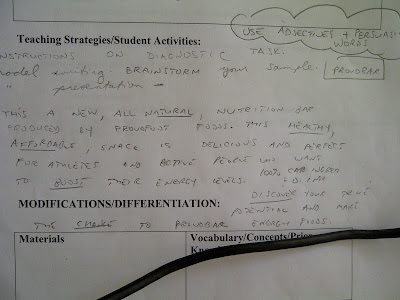 USE ADJECTIVES + PERSUASIVE
WORDS
Teaching Strategies/Student Activities:
INSTRUCTIONS ON DIAGNOSTIC TASK.
model writing BRAINSTORM your sample. PROVOBAR
" presentation -
THIS A NEW, ALL NATURAL, NUTRITION BAR
PRODUCED BY FOODS. THIS HEALTHY,
AFFORDABLE, SNACK IS DELICIOUS AND PERFECT
FOR ATHLETES AND ACTIVE PEOPLE WHO WANT
100%
TO BOOST THEIR ENERGY LEVELS.
DISCOVER YOUR TRUE
MODIFICATIONS/DIFFERENTIATION: POTENTIAL AND MAKE
THE CHANGE TO PROVOBAR ENERGY FOODS.
Materials
Vocabulary/Concepts/Prior